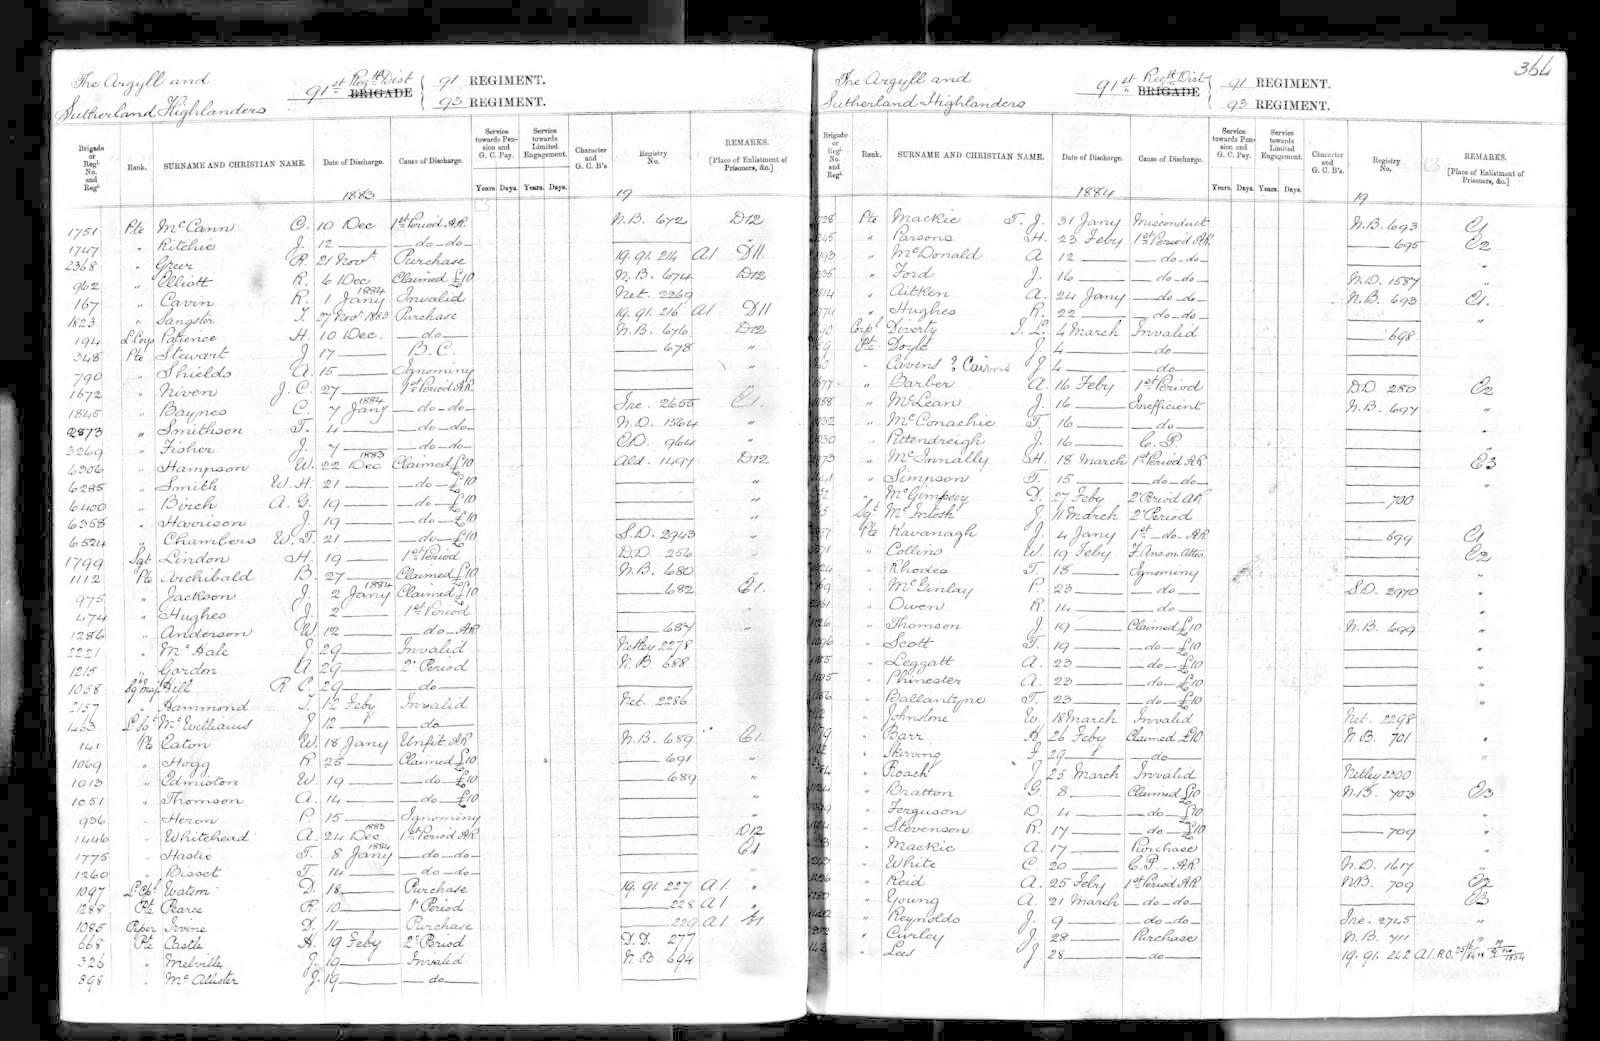 The Argyll and
Sutherland Highlanders
91st Regtl Dist
BRIGADE
91 REGIMENT.
93 REGIMENT.
Brigade or Regl. No. and Regt.
Rank.
SURNAME AND CHRISTIAN NAME.
Date of Discharge.
Cause of Discharge.
Service towards Pension and G. C. Pay.
Service towards Limited Engagement.
Character and G. C. B's.
Registry No.
REMARKS.
[Place of Enlistment of Prisoners, &c.]
Years. Days. Years. Days.
1883
19
1751 Pte McCann C. 10 Dec 1st Period A.R. N.B. 672 D12
1747 " Ritchie J. 12 — do - do - —
2368 " Greer R. 21 Novr Purchase 19. 91. 214 A1 D11
962 " Elliott R. 6 Dec Claimed £10 N.B. 674 D12
167 " Cavin R. 1 Jany 1884 Invalid Net. 2269
1823 " Sangster T. 27 Novr 1883 Purchase 19. 91. 216 A1 D11
194 L.Corp Patience H. 10 Dec. — do — N.B. 676 D12
348 Pte Stewart J. 17 — B.C. — 678 "
790 " Shields A. 15 — Ignominy — "
1672 " Niven J.C. 27 — 1st Period A.R. — "
1845 " Baynes C. 7 Jany 1884 — do - do - Ine. 2655 E1.
2873 " Smithson T. 4 — do - do - N.D. 1564 "
3269 " Fisher J. 7 — do - do - C.D. 964 "
6306 " Hampson W. 22 Dec 1883 Claimed £10 Ald. 1497 D12
6285 " Smith W.H. 21 — do — £10 — "
6400 " Birch A.G. 19 — do — £10 — "
6358 " Harrison J. 19 — do — £10 — "
6524 " Chambers W.T. 21 — do — £10 S.D. 2943 "
1799 Sgt Lindon H. 19 — 1st Period D.D. 256 "
1112 Pte Archibald B. 27 — Claimed £10 N.B. 680 "
975 " Jackson J. 2 Jany 1884 Claimed £10 — 682 E1.
474 " Hughes J. 2 — 1st Period — "
1286 " Anderson W. 12 — do — A.R. — 687 "
2221 " McHale J. 29 — Invalid Netley 2278 "
1215 " Gordon A. 29 — 2d Period N.B 688 "
1058 Sgt Maj Hill R C. 29 — do — "
2157 " Hammond T. 12 Feby Invalid Net. 2286 "
1463 McWilliams J 12 — do — "
141 Pte Eaton W. 18 Jany Unfit. A.R N.B. 689 E1
1069 " Hogg R. 25 — Claimed £10 — 691 "
1013 " Edmiston W. 19 — do — £10 — 689 "
1051 " Thomson A. 14 — do — £10 — "
936 " Heron P. 15 — Ignominy — "
1446 " Whitehead A. 24 Dec 1883 1st Period A.R — D12
1775 " Hastie T. 8 Jany 1884 — do - do - — E1
1260 " Bisset T. 14 — do - do - — "
1097 L.Cpl Watson D. 18 — Purchase 19. 91. 227 A1. "
1288 Pte Pearce R. 10 — 1st Period — 228 A1 "
1085 Piper Irvine D. 11 — Purchase — 229 A1
668 Pte Castle H. 19 Feby 2d Period D.D. 277
326 " Melville J. 19 — Invalid N.B 694
898 " McAllister J. 19 — do —
364
The Argyll and
Sutherland Highlanders
91st Regtl Dist
BRIGADE
91 REGIMENT.
93 REGIMENT.
Brigade or Regl. No. and Regt.
Rank.
SURNAME AND CHRISTIAN NAME.
Date of Discharge.
Cause of Discharge.
Service towards Pension and G. C. Pay.
Service towards Limited Engagement.
Character and G. C. B's.
Registry No.
REMARKS.
[Place of Enlistment of Prisoners, &c.]
Years. Days. Years. Days.
1884
19
Pte Mackie T. J. 31 Jany Misconduct N.B. 693 E1
" Parsons H. 23 Feby 1st Period A.R. — 695 E2
" McDonald A 12 — do - do - — "
" Ford J. 16 — do - do - N.D. 1587 "
" Aitken A. 24 Jany — do - do - N.B. 693 E1.
" Hughes R. 22 — do - do - — "
Corpl Diverty J. L. 4 March Invalid — 698
Pte Doyle J. 4 — do —
" Cavens ? Cairns J. 4 — do —
" Barber A. 16 Feby 1st Period D.D. 280 E2
" McLean J. 16 — Inefficient N.B. 697 "
" McConachie T. 16 — do — "
" Pittendreigh J. 16 — C. P — "
" McInnally H. 18 March 1st Period A.R — E3
" Simpson T. 15 — do - do - — "
" McGimpsey D. 27 Feby 2d Period A.R — 700
Sgt McIntosh J 11 March 2d Period —
Pte Kavanagh J. 4 Jany 1st — do — A.R — 699 E1
" Collins W. 19 Feby — E2
" Rhodes T. 18 — Ignominy — "
" McGinlay P. 23 — do — S.D. 2970 "
" Owen R. 14 — do — "
" Thomson J. 19 — Claimed £10 N.B. 699 "
" Scott T. 19 — do — £10 — "
" Leggatt A. 23 — do — £10 — "
" Phinester A. 23 — do — £10 — "
" Ballantyne T. 23 — do — £10 — "
" Johnstone W. 18 March Invalid Net. 2298
" Barr H. 26 Feby Claimed £10 N B. 701 "
" Skirving 29 — do — "
" Roach J 25 March Invalid Netley 2300
" Bratton G. 8 — Claimed £10 N.B. 703 E3
" Ferguson D. 4 — do — £10 — "
" Stevenson R. 17 — do — £10 — 709 "
" Mackie A. 17 — Purchase — "
" White C 20 — C.P — A.R N.D. 1617 "
" Reid A. 25 Feby 1st Period A.R N.B. 709 E2
" Young A. 21 March — do - do - — E3
" Reynolds J. 9 — do - do - Ine. 2745 "
" Curley J 28 — Purchase N.B. 711 "
" Lees J 28 — do — 19. 91. 242 A1. R.O.